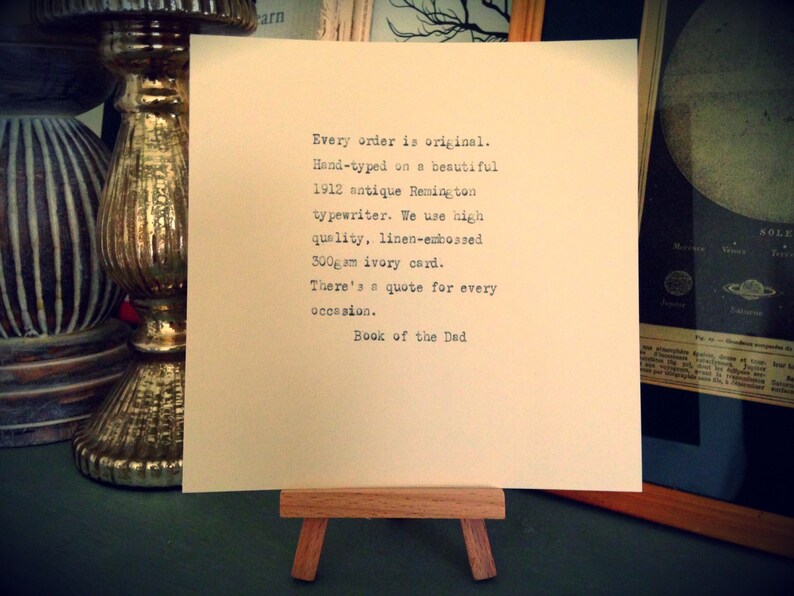 earn
Every order is original.
Hand-typed on a beautiful
1912 antique Remington
typewriter. We use high
quality, linen-embossed
300gsm ivory card.
There's a quote for every
occasion.
Book of the Dad
SOLE
Mercure Vénus Terre
Jupiter
Saturne